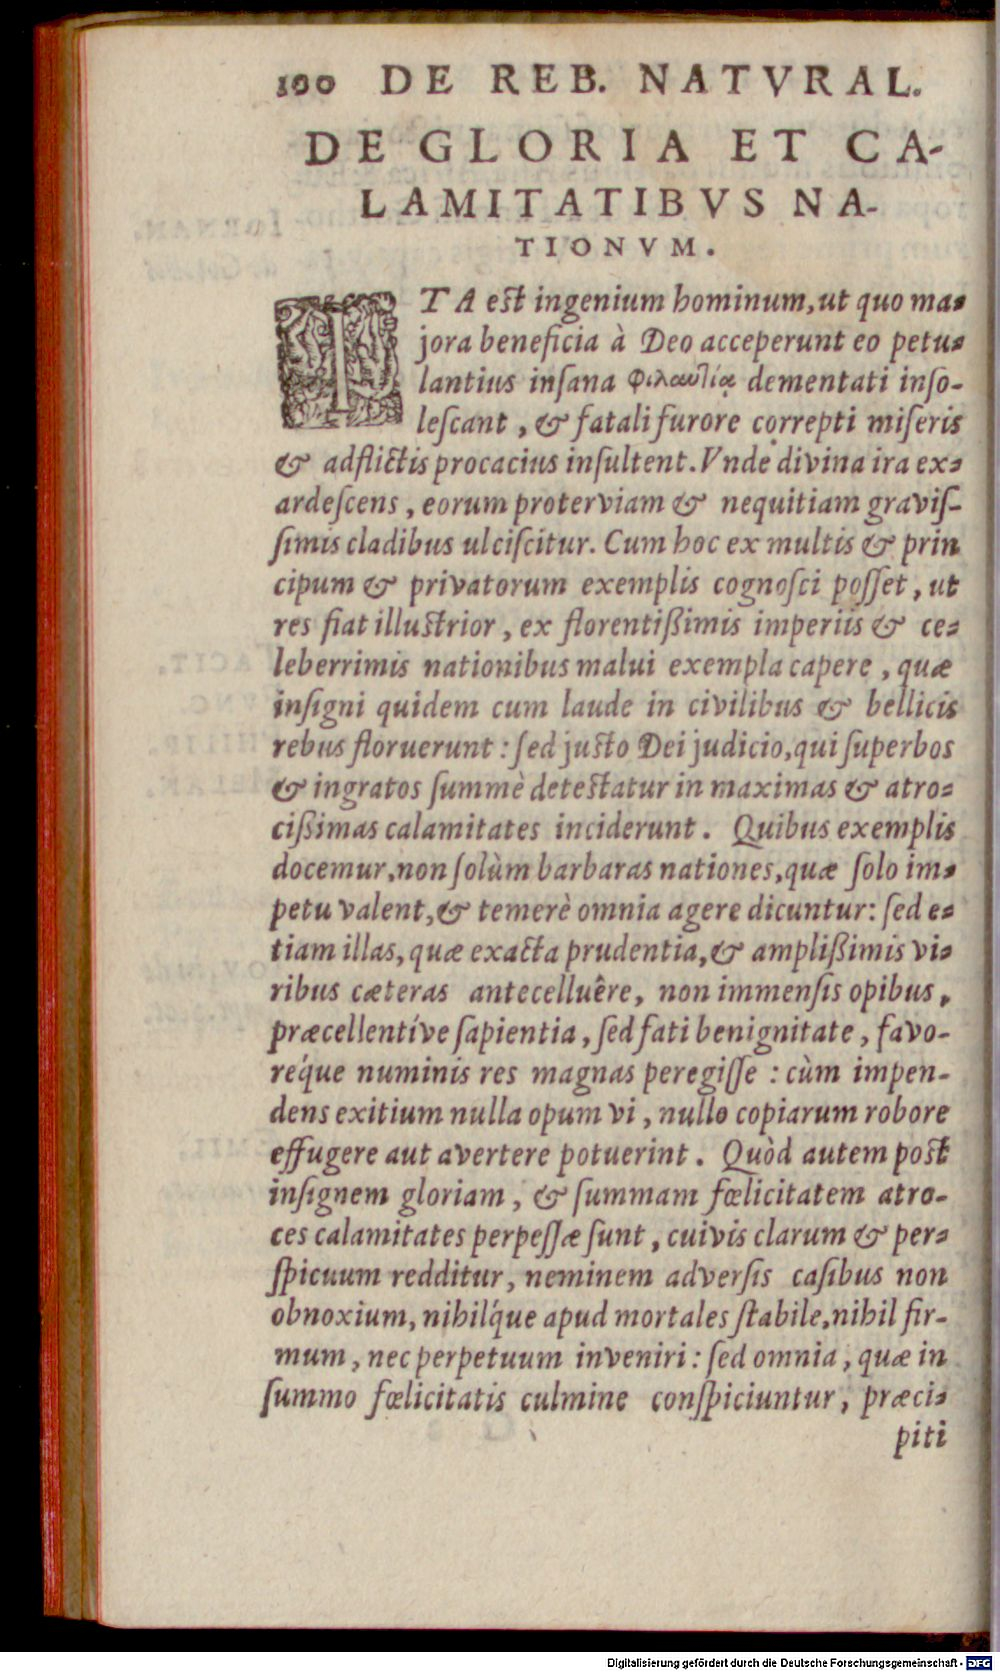 100 DE REB. NATVRAL.
DE GLORIA ET CA-
LAMITATIBVS NA-
TIONVM.
ITA est ingenium hominum, ut quo ma-
jora beneficia à Deo acceperunt eo petu-
lantius insana φιλαυτίᾳ dementati inso-
lescant, & fatali furore correpti miseris
& adflictis procacius insultent. Vnde divina ira ex-
ardescens, eorum proterviam & nequitiam gravis-
simis cladibus ulciscitur. Cum hoc ex multis & prin
cipum & privatorum exemplis cognosci posset, ut
res fiat illustrior, ex florentißimis imperiis & ce-
leberrimis nationibus malui exempla capere, quæ
insigni quidem cum laude in civilibus & bellicis
rebus floruerunt: sed justo Dei judicio, qui superbos
& ingratos summè detestatur in maximas & atro-
cißimas calamitates inciderunt. Quibus exemplis
docemur, non solùm barbaras nationes, quæ solo im-
petu valent, & temerè omnia agere dicuntur: sed e-
tiam illas, quæ exacta prudentia, & amplißimis vi-
ribus cæteras antecelluêre, non immensis opibus,
præcellentíve sapientia, sed fati benignitate, favo-
req́ue numinis res magnas peregisse: cùm impen-
dens exitium nulla opum vi, nullo copiarum robore
effugere aut avertere potuerint. Quòd autem post
insignem gloriam, & summam fœlicitatem atro-
ces calamitates perpessæ sunt, cuivis clarum & per-
spicuum redditur, neminem adversis casibus non
obnoxium, nihilq́ue apud mortales stabile, nihil fir-
mum, nec perpetuum inveniri: sed omnia, quæ in
summo fœlicitatis culmine conspiciuntur, præci-
piti
Digitalisierung gefördert durch die Deutsche Forschungsgemeinschaft - DFG